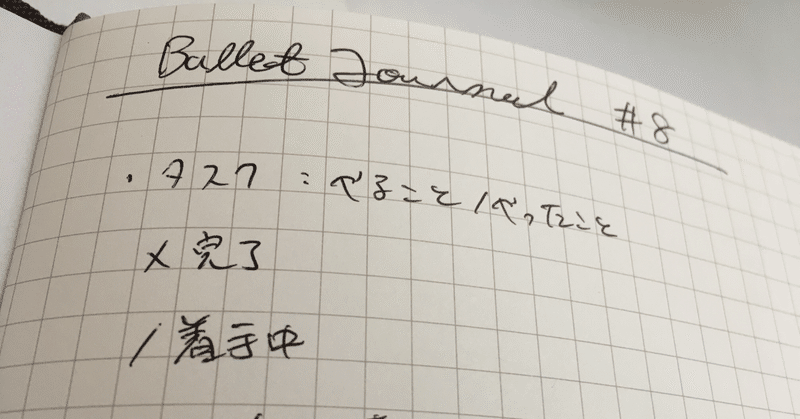 Bullet Journal #8
・タスク：やること/やったこと
× 完了
/ 着手中